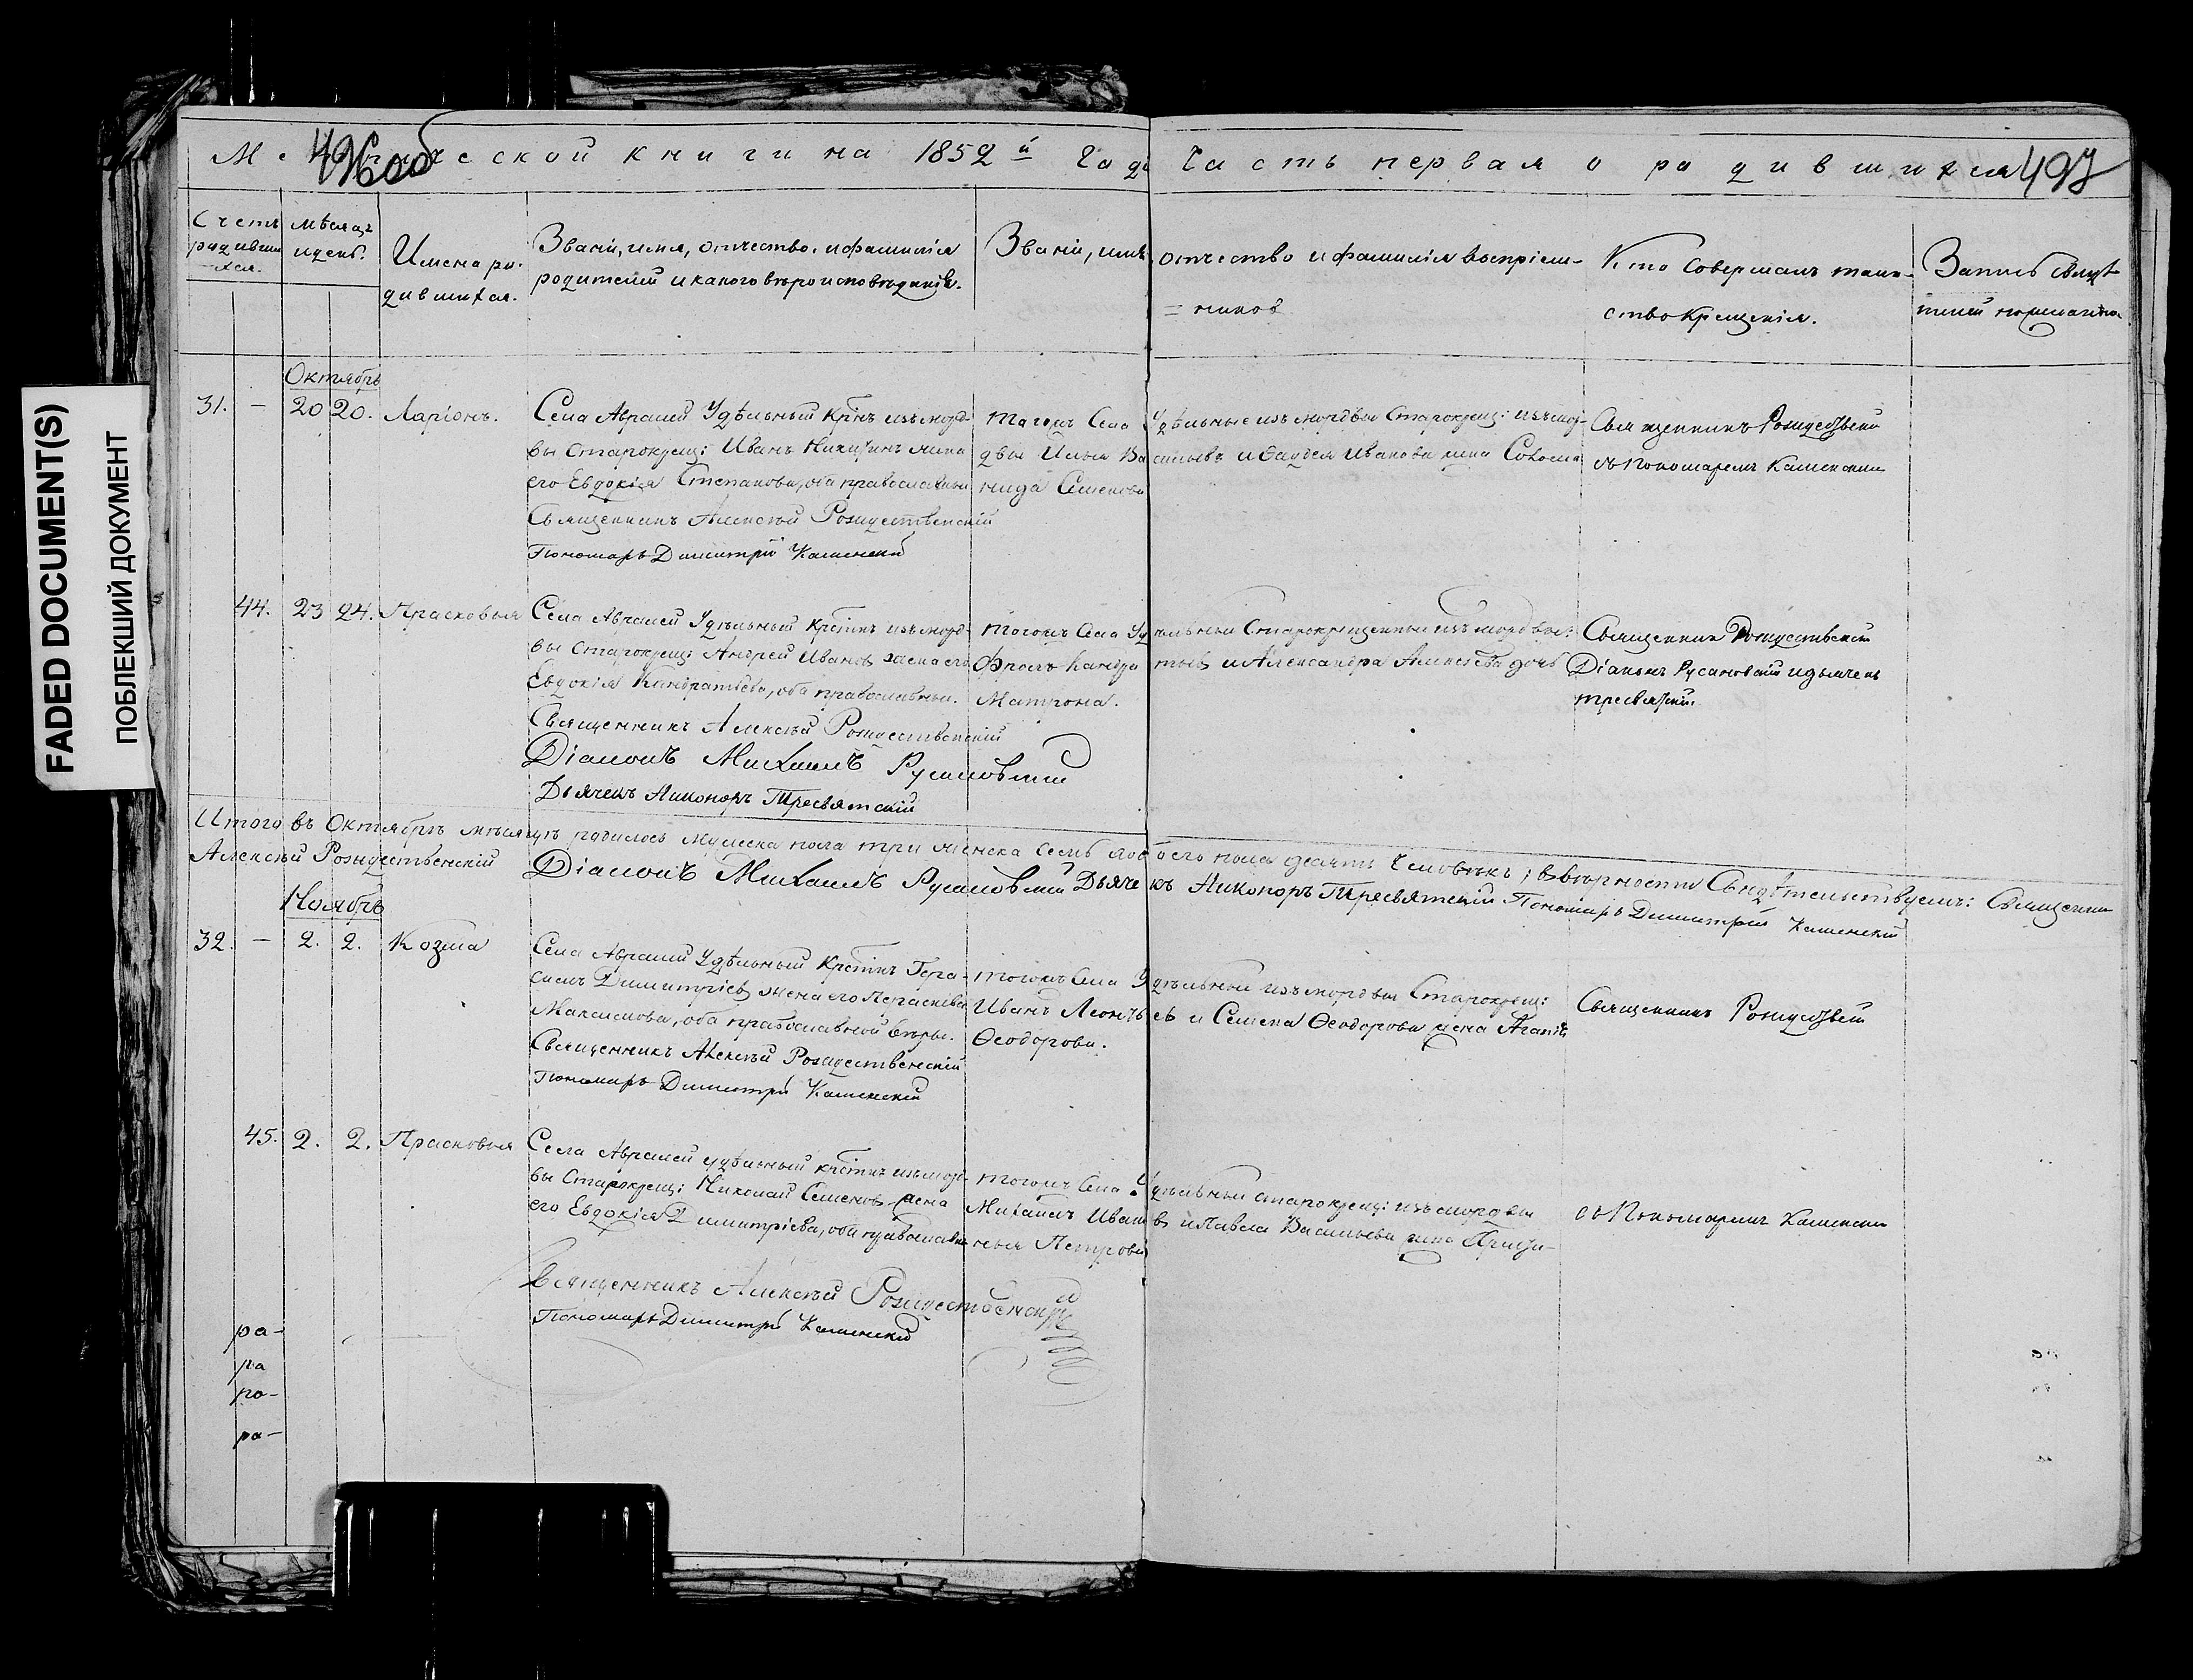 FADED DOCUMENT(S)
ПОБЛЕКШИЙ ДОКУМЕНТ
496об
497
Метрической книги на 1852й Годъ Часть первая о родившихся
Счетъ родившихся.
мѣсяцъ и день.
Имена родившихся.
Званіи, имя, отчество, и фамилія
родителей и какого вѣроисповѣданія.
Званіи, имя, отчество и фамилія воспріем-
=никовъ
Кто совершалъ таин-
ство крещенія.
Запись свидѣ
телей
Октябрь
31. — 20 20. Ларіонъ.
Села Авралей Удѣльный Кр̃нъ изъ морд-
вы Старокрещ: Иванъ Никитинъ жена
его Евдокія Степанова, оба православныи
Священникъ Алексѣй Рождественскій
Пономарь Димитрій Каменскій
Тогожъ Села Удѣльные изъ мордвы Старокрещ: изъ мор-
двы Илья Васильевъ и Фаддея Иванова жена Соломо
нида Семенова
Священникъ Рождествен
съ пономаремъ Каменским
44. 23 24. Прасковья
Села Авралей Удѣльный Крс̃тинъ изъ морд-
вы Старокрещ: Андрей Ивановъ жена его
Евдокія Кандратьева, оба православныи.
Священникъ Алексѣй Рождественскій
Діаконъ Михаилъ Русановскій
Дьячекъ Никоноръ Тресвятскій
Тогожъ Села Удѣльныи Старокрещенныи изъ мордвы:
Фролъ Кандратьевъ и Александра Алексѣева дочь
Матрона.
Священник Рождественскій
Діаконъ Русановскій и дьячекъ
Тресвятскій.
Итого въ Октябрѣ мѣсяцѣ родилось мужеска пола три женска семь обоего пола десять человѣкъ; въ вѣрности Свидѣтельствуемъ: Священник
Алексѣй Рождественскій Діаконъ Михаилъ Русановскій Дьячекъ Никоноръ Тресвятскій Пономарь Димитрій Каменскій
Ноябрь
32. — 2. 2. Козма
Села Авралей Удѣльный Крс̃тинъ Гера-
симъ Димитріевъ жена его Параскева
Максимова, оба православной вѣры.
Священникъ Алексѣй Рождественскій
Пономарь Димитрій Каменскій
Тогожъ Села Удѣльныи изъ мордвы Старокрещ:
Иванъ Леонтьевъ и Семена Ѳеодорова жена Агапія
Ѳеодорова.
Священникъ Рождествен
45. 2. 2. Прасковья
Села Авралей удѣльный крс̃тинъ изъ морд-
вы Старокрещ: Николай Семеновъ жена
его Евдокія Димитріева, оба православн
Священникъ Алексѣй Рождественскій
Пономарь Димитрій Каменскій
Тогожъ Села Удѣльныи старокрещ: изъ мордвы
Михаилъ Ивановъ и Павла Васильева жена
Петрова
съ Пономаремъ Каменским
ра-
ра
ро-
ра-